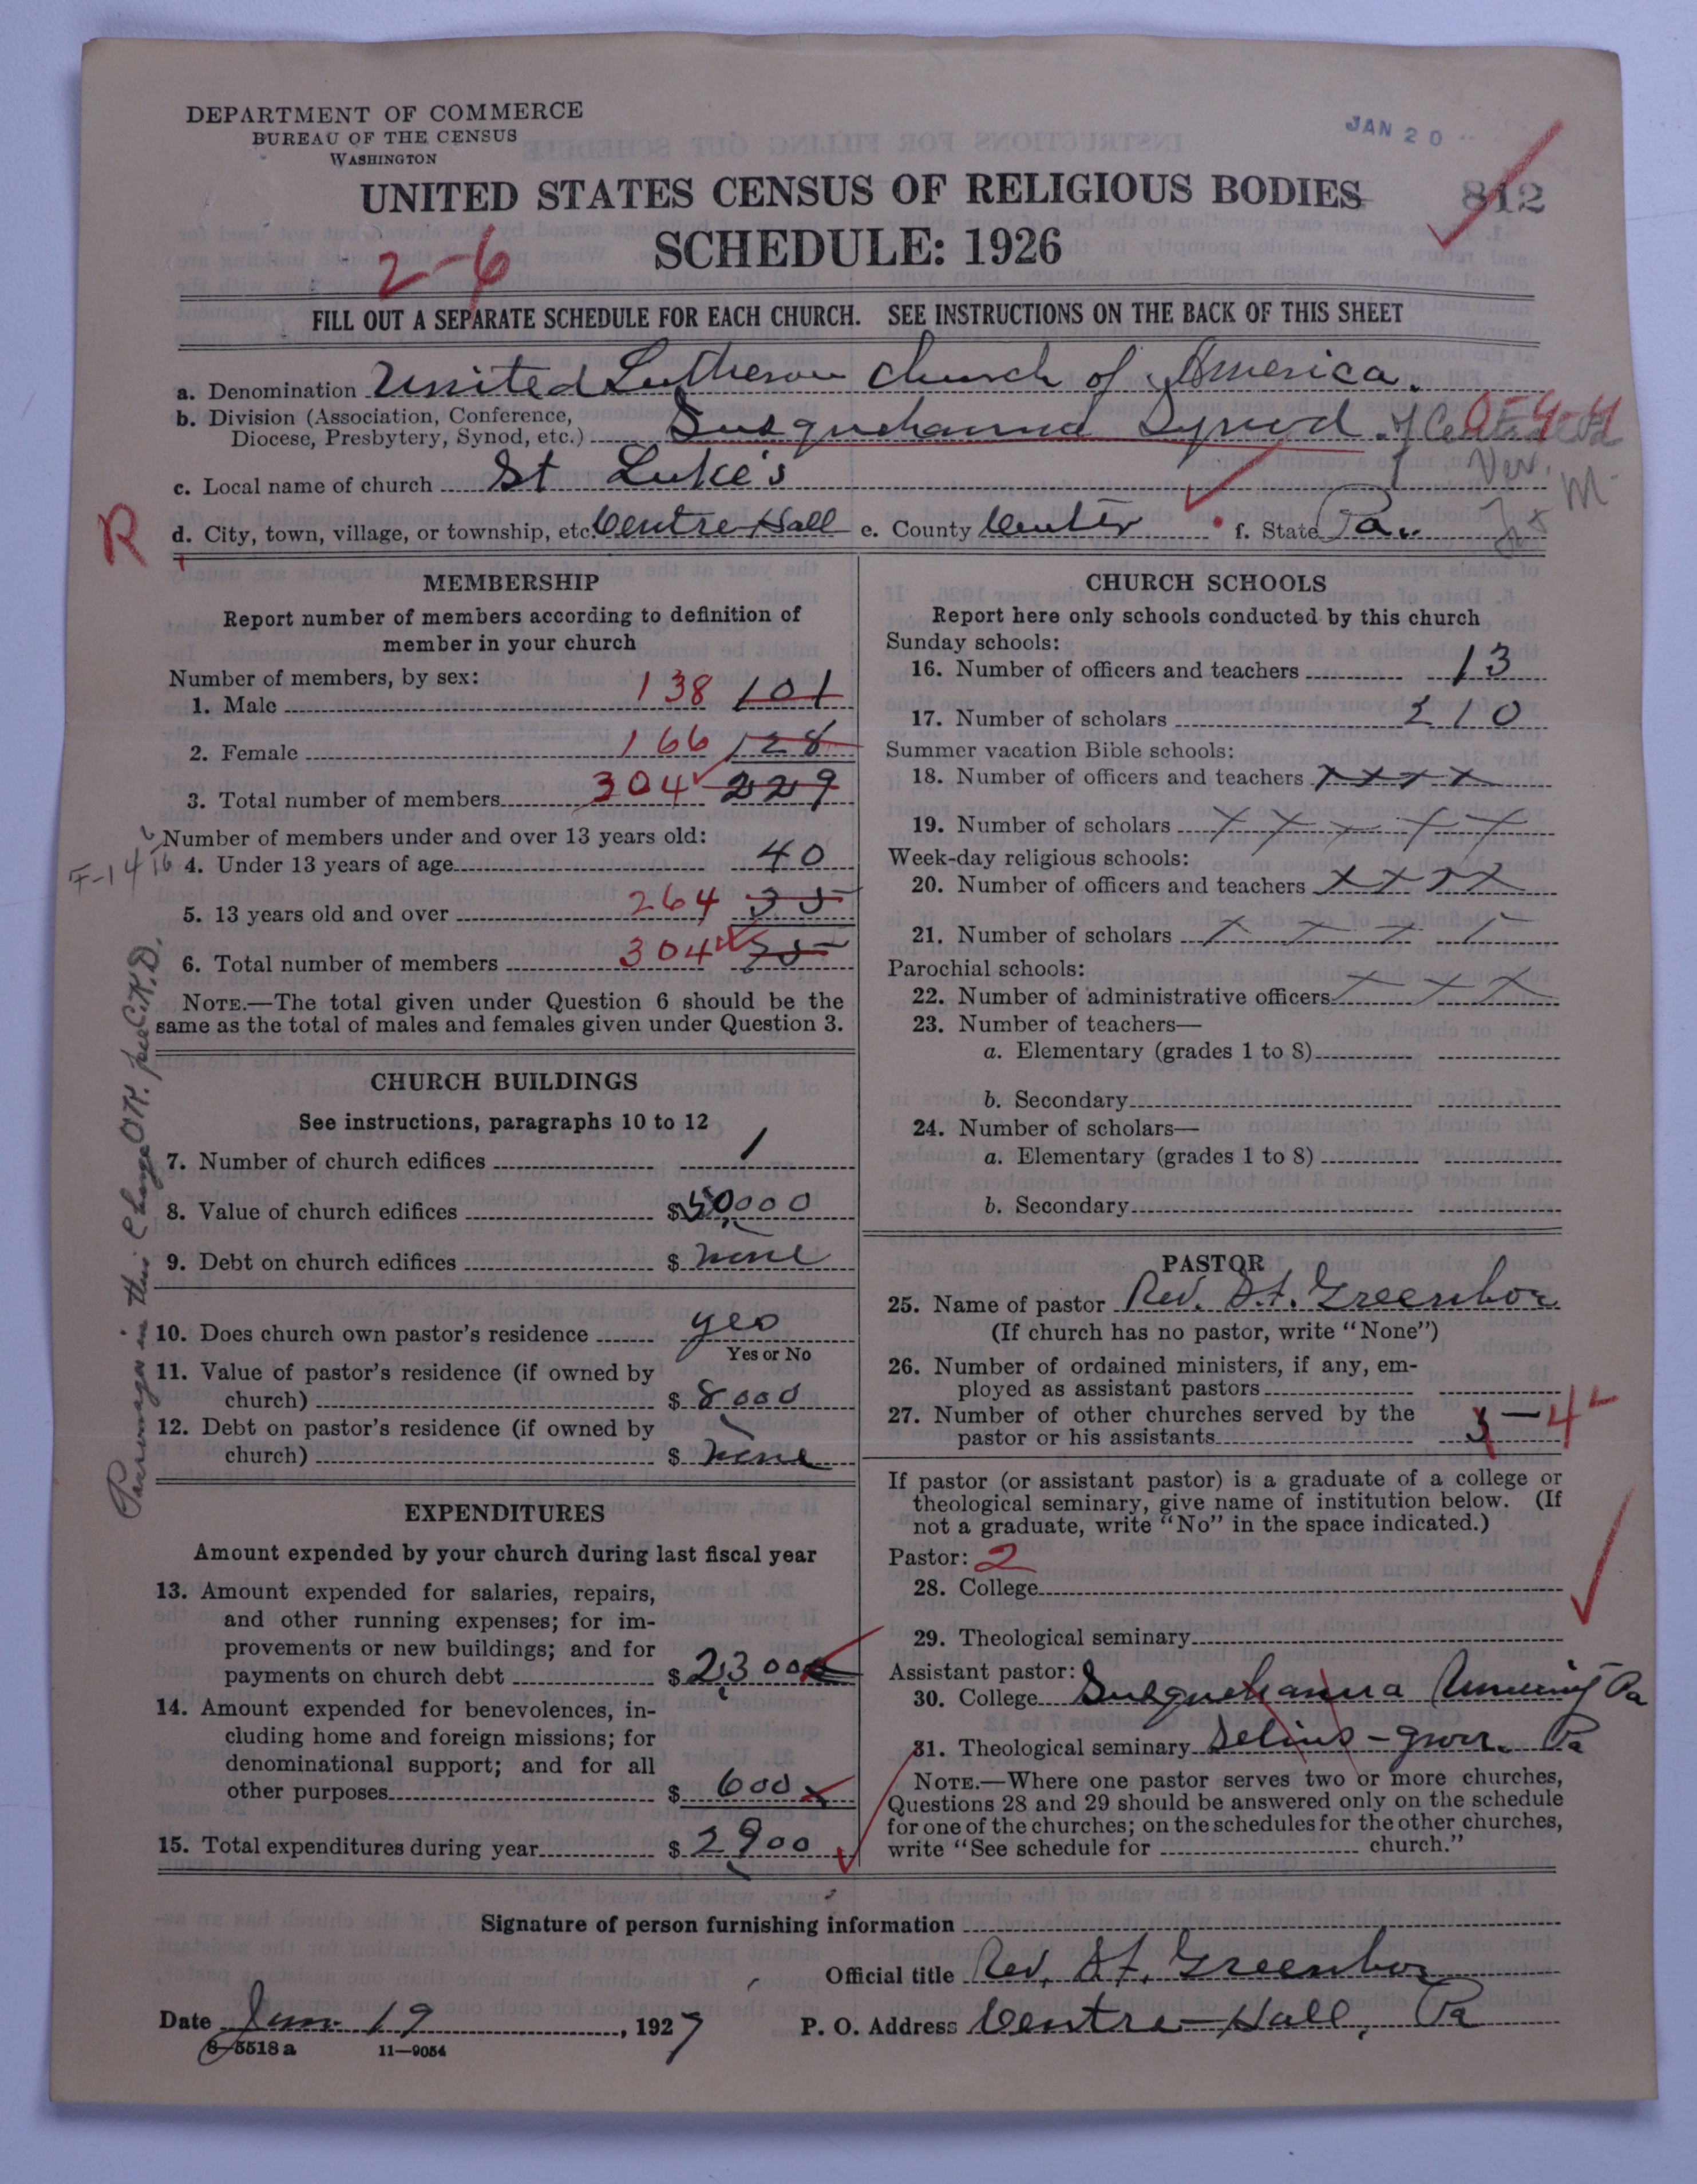 DEPARTMENT OF COMMERCE
BUREAU OF THE CENSUS
WASHINGTON
JAN 20
UNITED STATES CENSUS OF RELIGIOUS BODIES
812
SCHEDULE: 1926
2-6
FILL OUT A SEPARATE SCHEDULE FOR EACH CHURCH. SEE INSTRUCTIONS ON THE BACK OF THIS SHEET
a. Denomination United Lutheran Church of America.
b. Division (Association, Conference,
Diocese, Presbytery, Synod, etc.) Susquehanna Synod of 0-4-4
Ver.
M.
c. Local name of church St Luke's
R
d. City, town, village, or township, etc. Centre Hall e. County Center f. State Pa.
MEMBERSHIP
Report number of members according to definition of
member in your church
Number of members, by sex:
1. Male 138 101
2. Female 166 128
3. Total number of members 304 229
Number of members under and over 13 years old:
F-14 16
4. Under 13 years of age 40
5. 13 years old and over 264 35
6. Total number of members 304 75
NOTE.—The total given under Question 6 should be the
same as the total of males and females given under Question 3.
CHURCH BUILDINGS
See instructions, paragraphs 10 to 12
7. Number of church edifices 1
8. Value of church edifices $50,000
9. Debt on church edifices $ none
10. Does church own pastor's residence yes
Yes or No
11. Value of pastor's residence (if owned by
church) $ 8000
12. Debt on pastor's residence (if owned by
church) $ none
in this Change OK. per C.K.D.
EXPENDITURES
Amount expended by your church during last fiscal year
13. Amount expended for salaries, repairs,
and other running expenses; for im-
provements or new buildings; and for
payments on church debt $ 2,300
14. Amount expended for benevolences, in-
cluding home and foreign missions; for
denominational support; and for all
other purposes $ 600
15. Total expenditures during year $ 2900
CHURCH SCHOOLS
Report here only schools conducted by this church
Sunday schools:
16. Number of officers and teachers 13
17. Number of scholars 210
Summer vacation Bible schools:
18. Number of officers and teachers x x x x
19. Number of scholars x x x x x
Week-day religious schools:
20. Number of officers and teachers x x x x
21. Number of scholars x x x x
Parochial schools:
22. Number of administrative officers x x x
23. Number of teachers—
a. Elementary (grades 1 to 8)
b. Secondary
24. Number of scholars—
a. Elementary (grades 1 to 8)
b. Secondary
PASTOR
25. Name of pastor Rev. S. F. Greenhoe
(If church has no pastor, write "None")
26. Number of ordained ministers, if any, em-
ployed as assistant pastors
27. Number of other churches served by the
pastor or his assistants 3 - 4
If pastor (or assistant pastor) is a graduate of a college or
theological seminary, give name of institution below. (If
not a graduate, write "No" in the space indicated.)
Pastor: 2
28. College
29. Theological seminary
Assistant pastor:
30. College Susquehanna University Pa
31. Theological seminary Selins-grove. Pa
NOTE.—Where one pastor serves two or more churches,
Questions 28 and 29 should be answered only on the schedule
for one of the churches; on the schedules for the other churches,
write "See schedule for church."
Signature of person furnishing information
Official title Rev. S. F. Greenhoe
Date Jan. 19, 1927
P. O. Address Centre Hall, Pa
8-5518a 11—9054